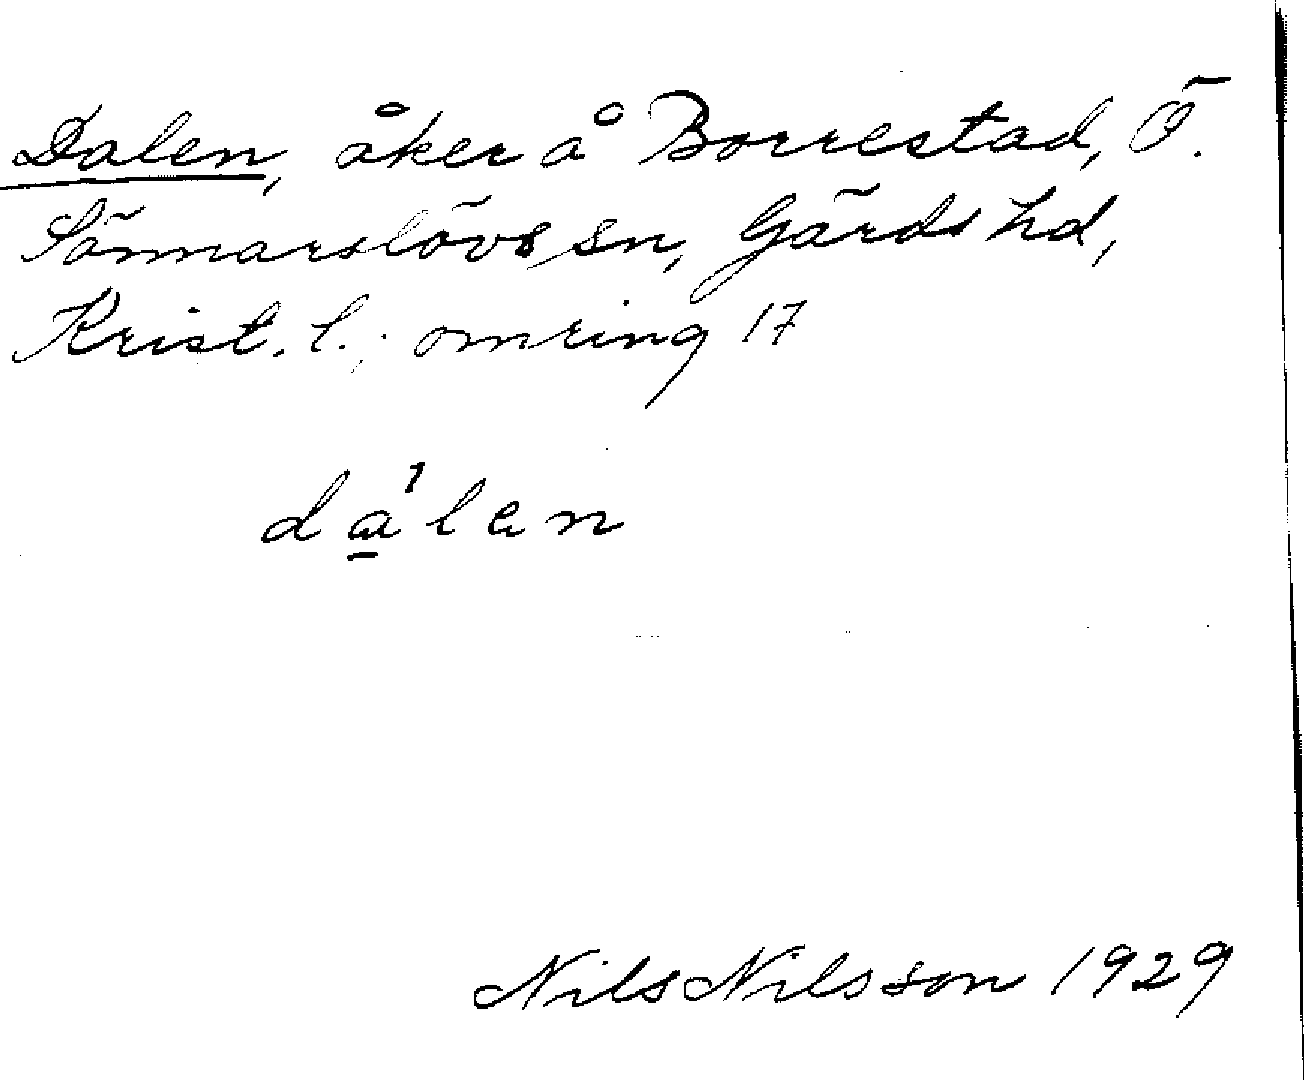 Dalen, åker å Borrestad, Ö.
Sönnarslövs sn, Gärds hd,
Krist. l.; omring 17
da̲'len
Nils Nilsson 1929